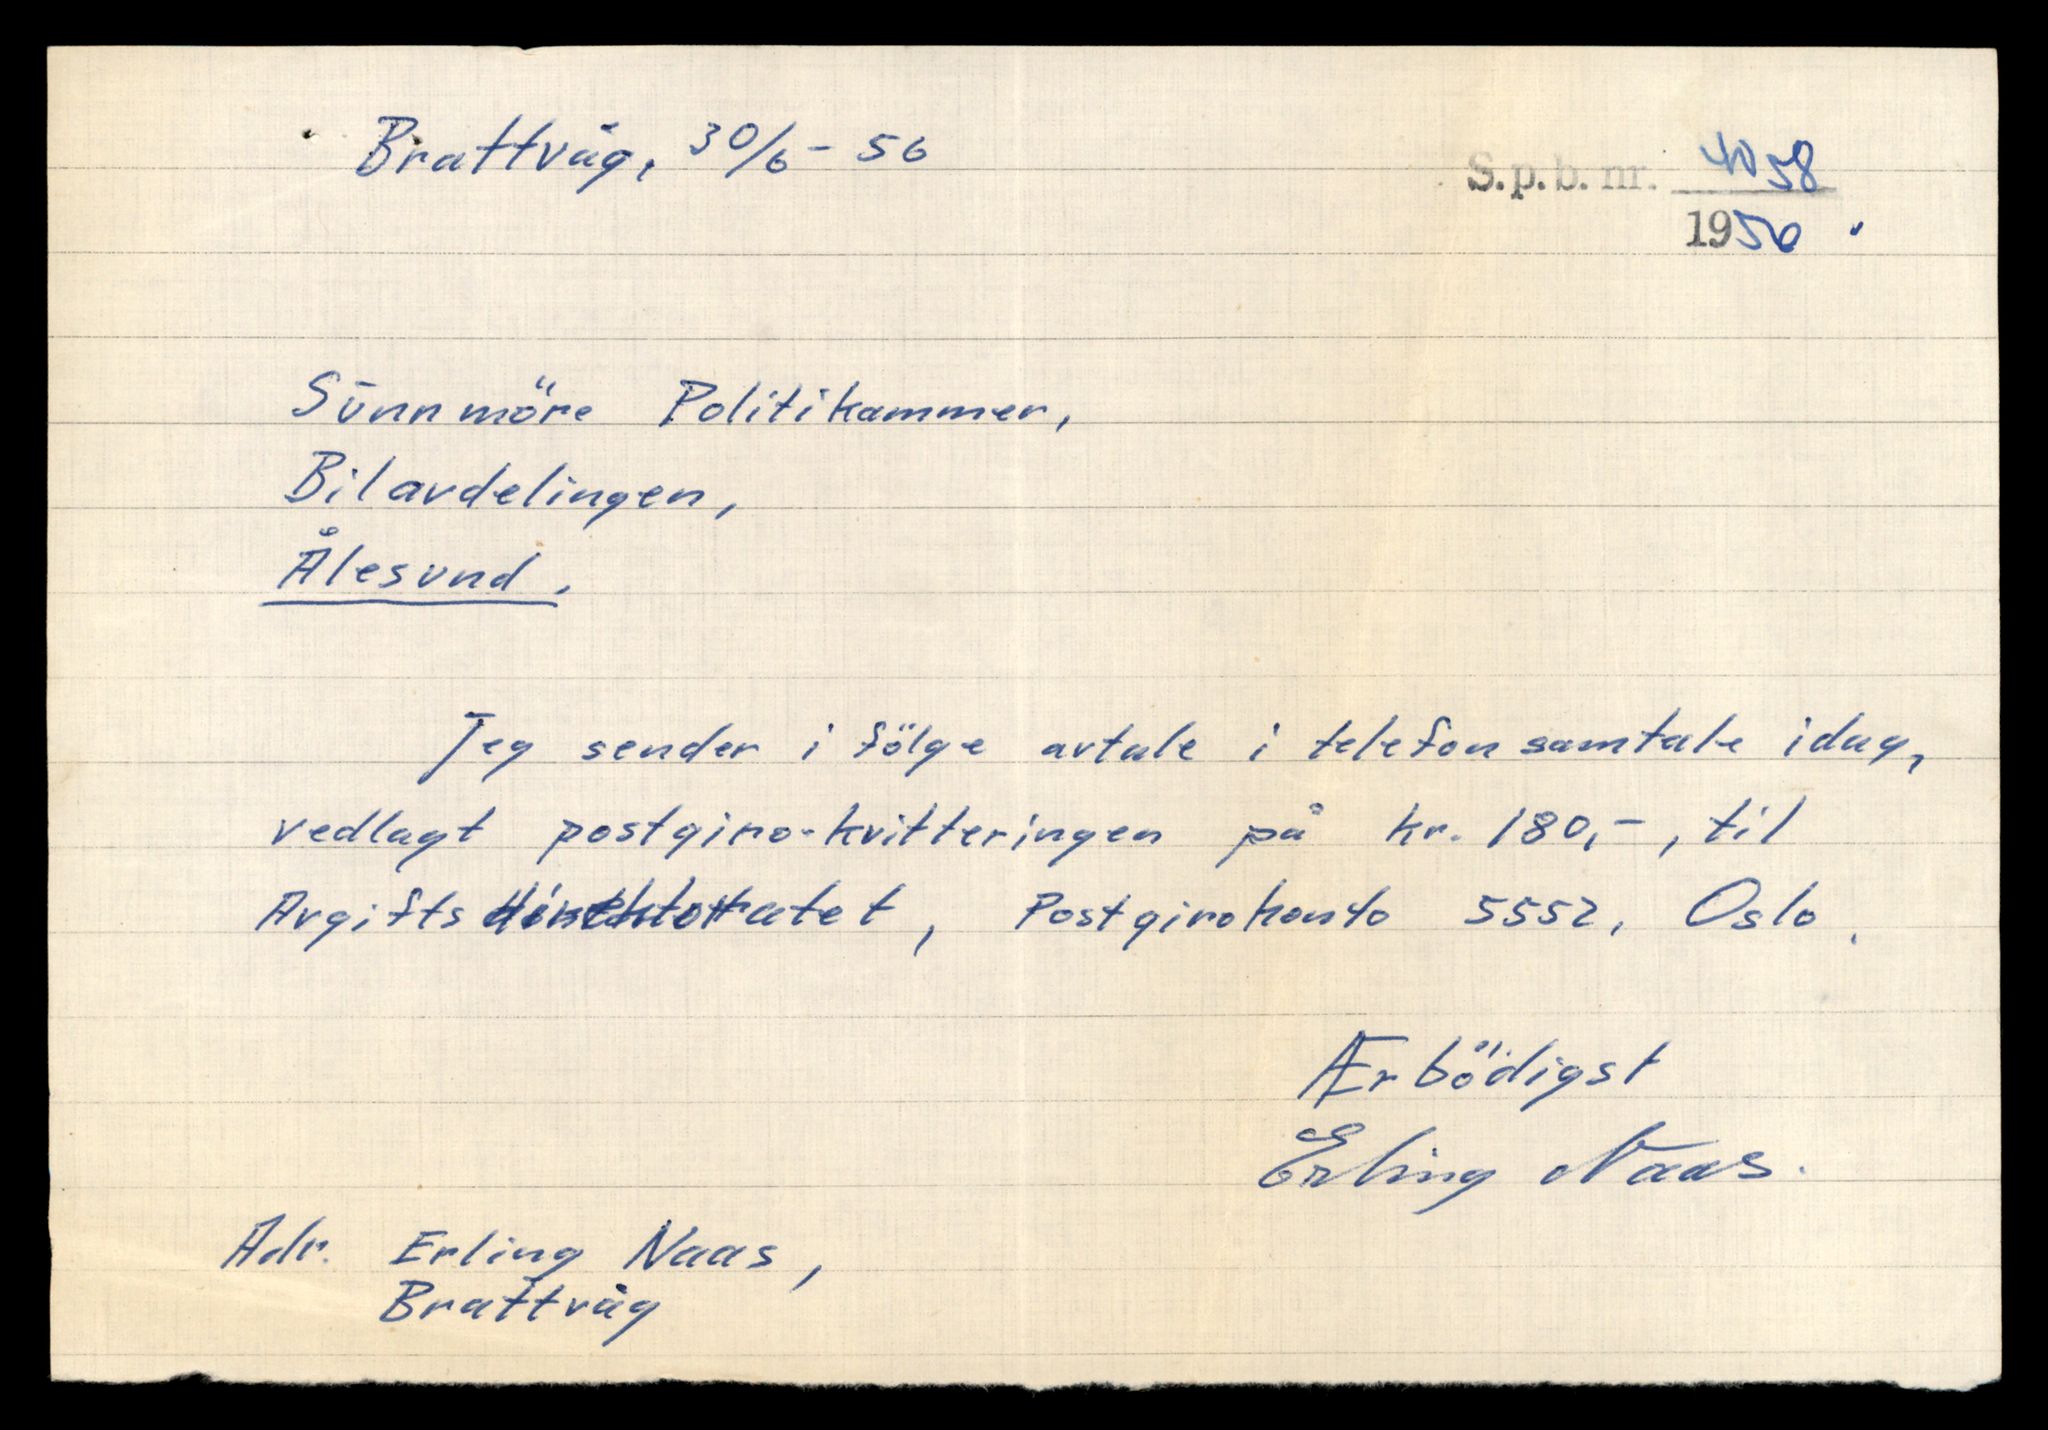 Brattvåg, 30/6 - 56
S.p.b. nr. 4058
1956.
Sunnmöre Politikammer,
Bilavdelingen,
Ålesund.
Jeg sender i fölge avtale i telefonsamtale idag,
vedlagt postgiro-kvitteringen på kr. 180,-, til
Avgiftsdirektoratet, Postgirokonto 5552, Oslo.
Ærbödigst
Erling Naas.
Adr. Erling Naas,
Brattvåg